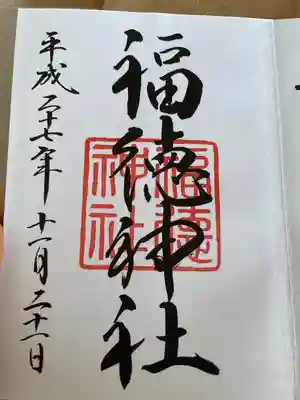 福徳神社
福徳神社
平成二十七年十一月二十一日